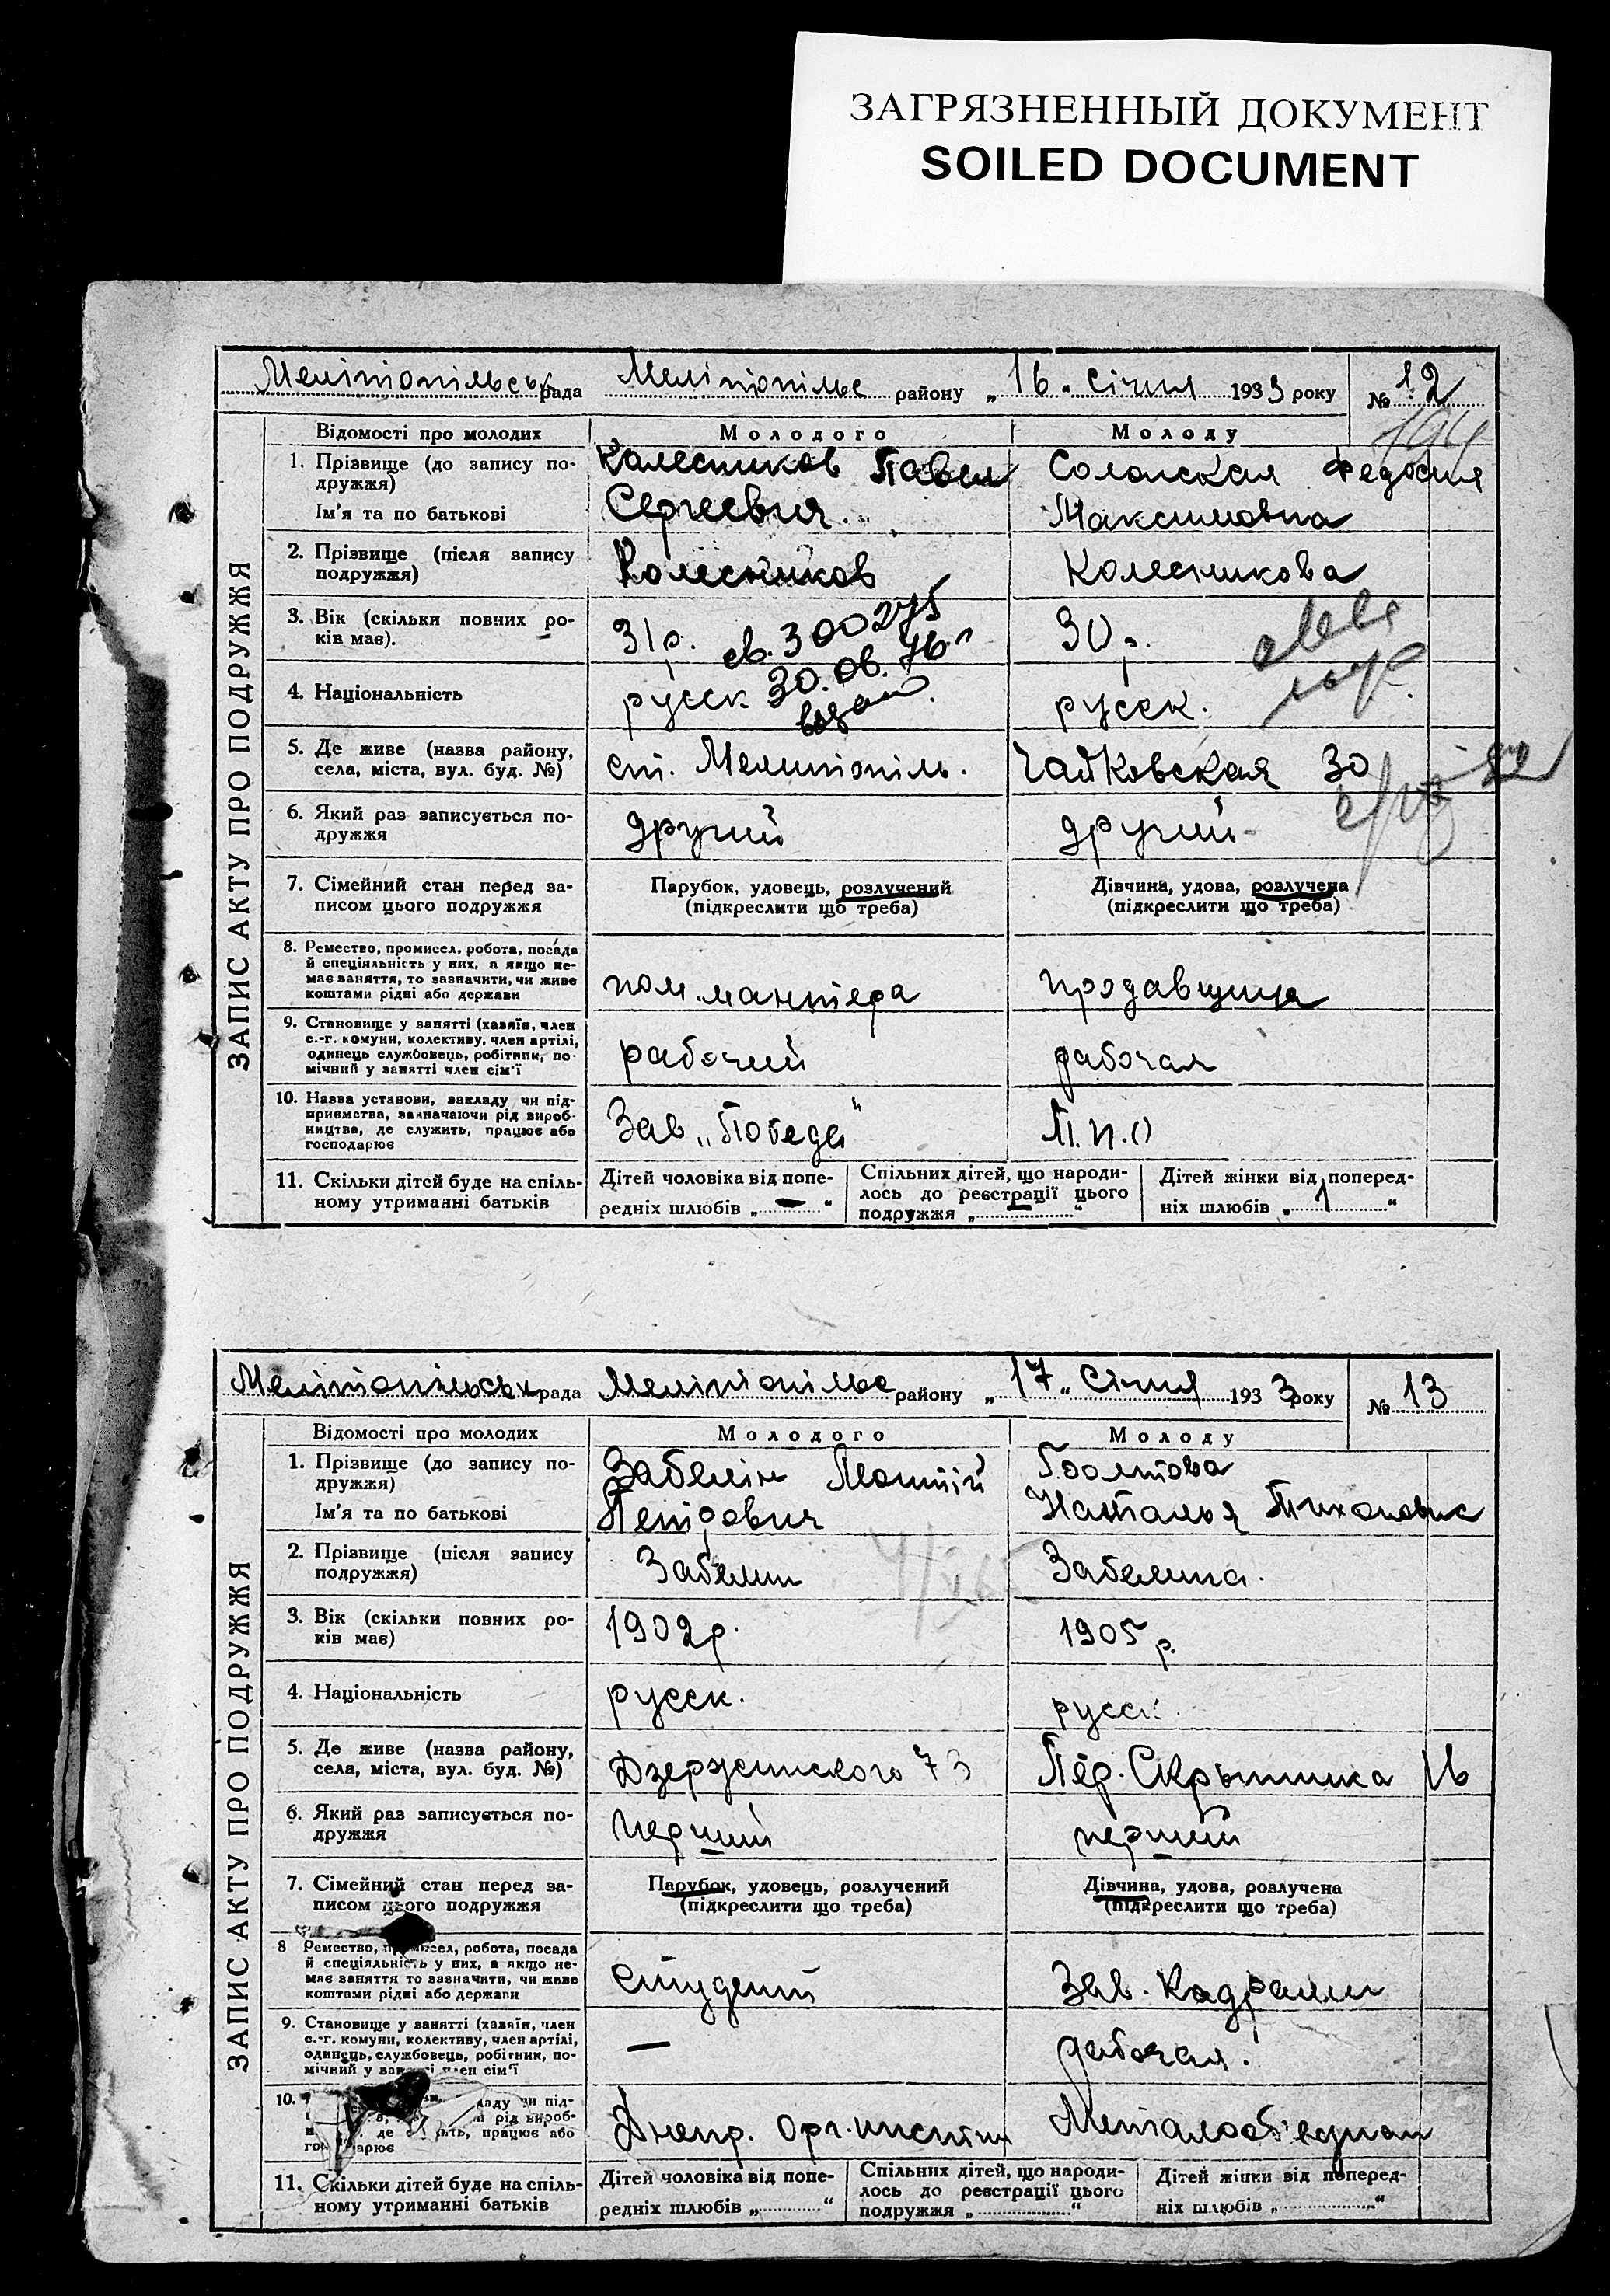 ЗАГРЯЗНЕННЫЙ ДОКУМЕНТ
SOILED DOCUMENT
Мелітопільськ рада Мелітопільс району „16“ Січня 1933 року № 12
ЗАПИС АКТУ ПРО ПОДРУЖЖЯ
Відомості про молодих Молодого Молоду
1. Прізвище (до запису по-
дружжя)
Ім'я та по батькові
Колесников Павел
Сергеевич
Федосия
Максимовна
2. Прізвище (після запису
подружжя)
Колесников
Колесникова
3. Вік (скільки повних ро-
ків має).
31 р.
св. 300275
30.06.76 г
30 р.
4. Національність
русск
русск.
5. Де живе (назва району,
села, міста, вул. буд. №)
ст. Мелитопіль.
Чайковская 30
6. Який раз записується по-
дружжя
другий
другий
7. Сімейний стан перед за-
писом цього подружжя
Парубок, удовець, розлучений
(підкреслити що треба)
Дівчина, удова, розлучена
(підкреслити що треба)
8. Ремество, промисел, робота, посада
й спеціяльність у них, а якщо не-
має заняття, то зазначити, чи живе
коштами рідні або держави
пом. монтера
продавщица
9. Становище у занятті (хазяїн, член
с.-г. комуни, колективу, член артілі,
одинець службовець, робітник, по-
мічний у занятті член сім'ї
рабочий
рабочая
10. Назва установи, закладу чи під-
приємства, зазначаючи рід вироб-
ництва, де служить, працює або
господарює
Зав „Победа“
11. Скільки дітей буде на спіль-
ному утриманні батьків
Дітей чоловіка від попе-
редніх шлюбів „ — “
Спільних дітей, що народи-
лось до реєстрації цього
подружжя „ — “
Дітей жінки від поперед-
ніх шлюбів „ 1 “
Мелітопільськ рада Мелітопільс району „17“ Січня 1933 року № 13
ЗАПИС АКТУ ПРО ПОДРУЖЖЯ
Відомості про молодих Молодого Молоду
1. Прізвище (до запису по-
дружжя)
Ім'я та по батькові
Забелін
Петрович
Наталья Тихоновна
2. Прізвище (після запису
подружжя)
Забелин
Забелина.
3. Вік (скільки повних ро-
ків має)
1902 р.
1905 р.
4. Національність
русск.
русск.
5. Де живе (назва району,
села, міста, вул. буд. №)
Дзержинского 73
Пер. Скрыпника 16
6. Який раз записується по-
дружжя
перший
перший
7. Сімейний стан перед за-
писом цього подружжя
Парубок, удовець, розлучений
(підкреслити що треба)
Дівчина, удова, розлучена
(підкреслити що треба)
8 Ремество, промисел, робота, посада
й спеціяльність у них, а якщо не-
має заняття то зазначити, чи живе
коштами рідні або держави
студент
Зав. Кадрами
9. Становище у занятті (хазяїн, член
с.-г. комуни, колективу, член артілі,
одинець, службовець, робітник, по-
мічний у занятті член сім'ї
—
рабочая.
10. чи під-
рід вироб-
де працює або
Днепр.
11. Скільки дітей буде на спіль-
ному утриманні батьків
Дітей чоловіка від попе-
редніх шлюбів „ “
Спільних дітей, що народи-
лось до реєстрації цього
подружжя „ “
Дітей жінки від поперед-
ніх шлюбів „ “